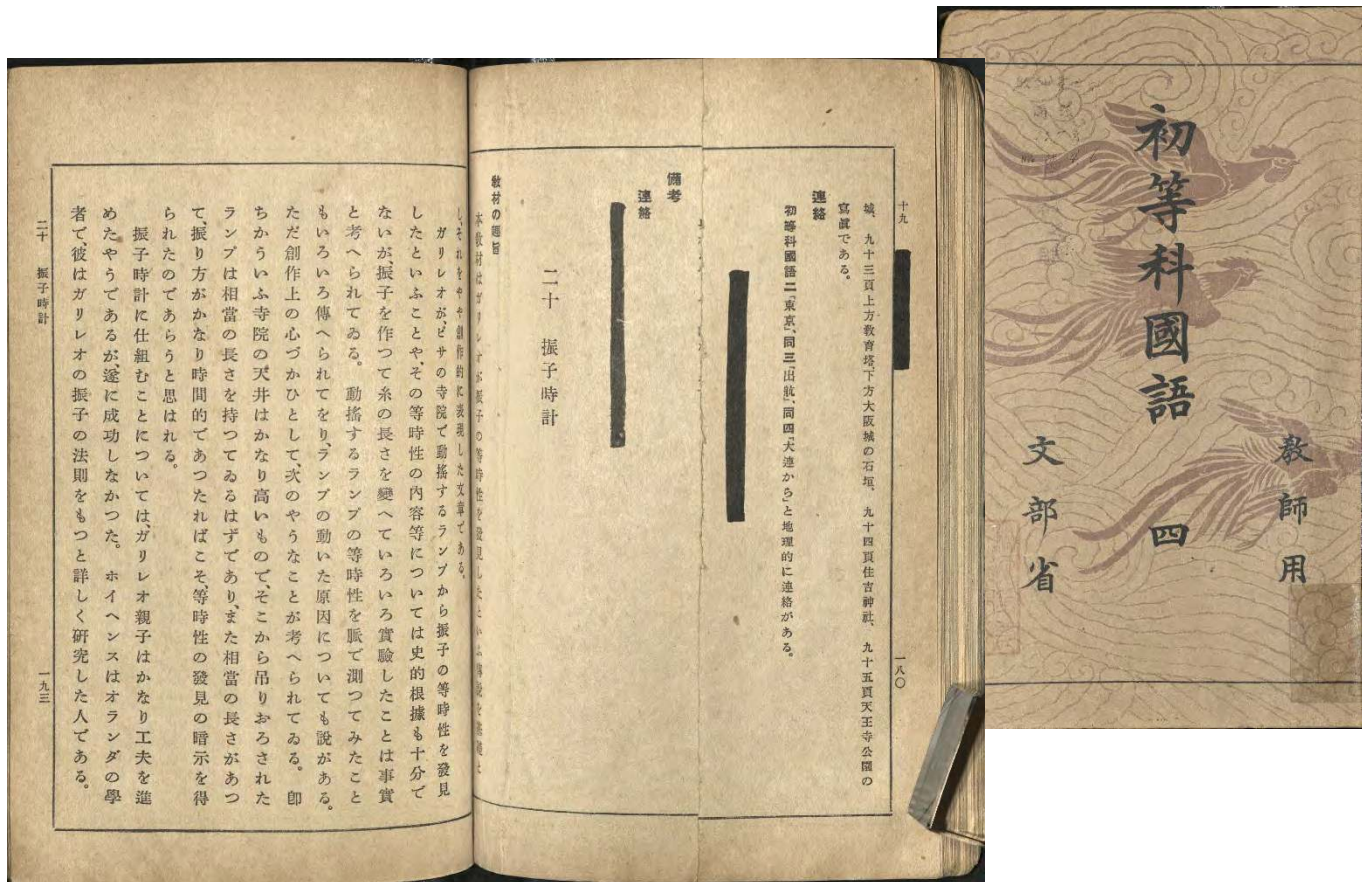 初等科國語 四
教師用
文部省
十九
一八〇
城、九十三頁上方教育塔、下方大阪城の石垣、九十四頁住吉神社、九十五頁天王寺公園の
寫眞である。
連絡
初等科國語二「東京」、同三「出航」、同四「大連から」と地理的に連絡がある。
備考
連絡
二十 振子時計
教材の趣旨
本教材はガリレオが振子の等時性を發見したといふ
し、それをやや創作的に表現した文章である。
ガリレオがピサの寺院で動搖するランプから振子の等時性を發見
したといふことや、その等時性の内容等については史的根據も十分で
ないが、振子を作つて糸の長さを變へていろいろ實驗したことは事實
と考へられてゐる。動搖するランプの等時性を脈で測つてみたこと
もいろいろ傳へられてをり、ランプの動いた原因についても説がある。
ただ創作上の心づかひとして、次のやうなことが考へられてゐる。卽
ちかういふ寺院の天井はかなり高いもので、そこから吊りおろされた
ランプは相當の長さを持つてゐるはずであり、また相當の長さがあつ
て、振り方がかなり時間的であつたればこそ、等時性の發見の暗示を得
られたのであらうと思はれる。
振子時計に仕組むことについては、ガリレオ親子はかなり工夫を進
めたやうであるが、遂に成功しなかつた。ホイヘンスはオランダの學
者で、彼はガリレオの振子の法則をもつと詳しく硏究した人である。
二十 振子時計
一九三